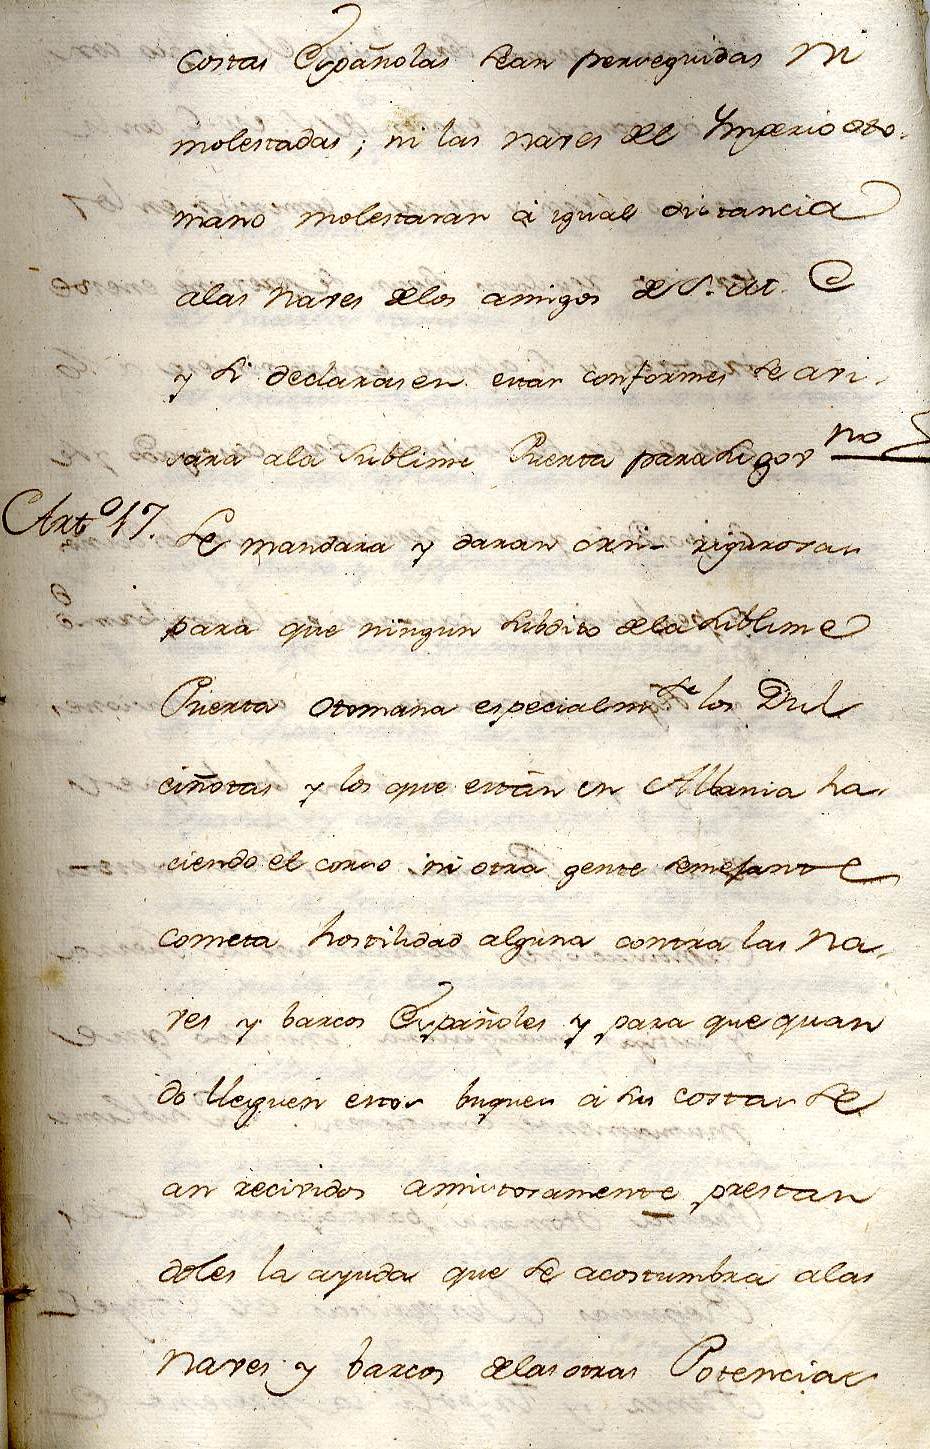 costas Españolas sean perseguidas ni
molestadas; ni las naves del Ymperio oto-
mano molestaran à igual distancia
alas naves delos amigos de S. M. C
y si declarasen estar conformes se avi-
sara ala sublime Puerta para su gov no
Arto 17. Se mandara y daran orn- rigurosas
para que ningun subdito dela sublime
Puerta otomana especialmte los Dul
ciñotas y los que están en Albania ha-
ciendo el corso ni otra gente semejante
cometa hostilidad alguna contra las na-
ves y barcos Españoles y para que quan
do lleguen estos buques à sus costas se
an recividos amistosamente prestan
doles la ayuda que se acostumbra alas
naves y barcos delas otras Potencias